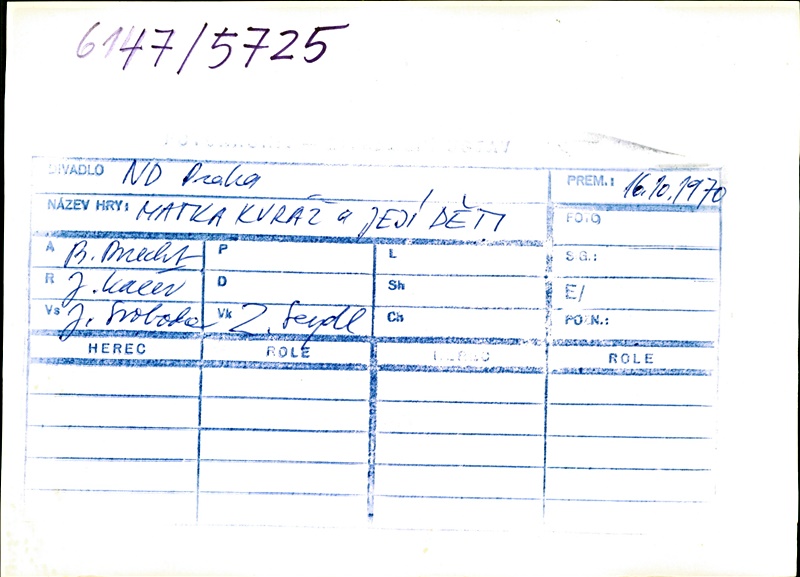 6147/5725
DIVADLO ND Praha
PREM.: 16.10.1970
NÁZEV HRY: MATKA KURÁŽ a JEJÍ DĚTI
FOTO
A B. Brecht P L
SG.:
R J. Kačer D Sh
E/
Vs J. Svoboda Vk Z. Seydl Ch
POZN.:
HEREC ROLE HEREC ROLE